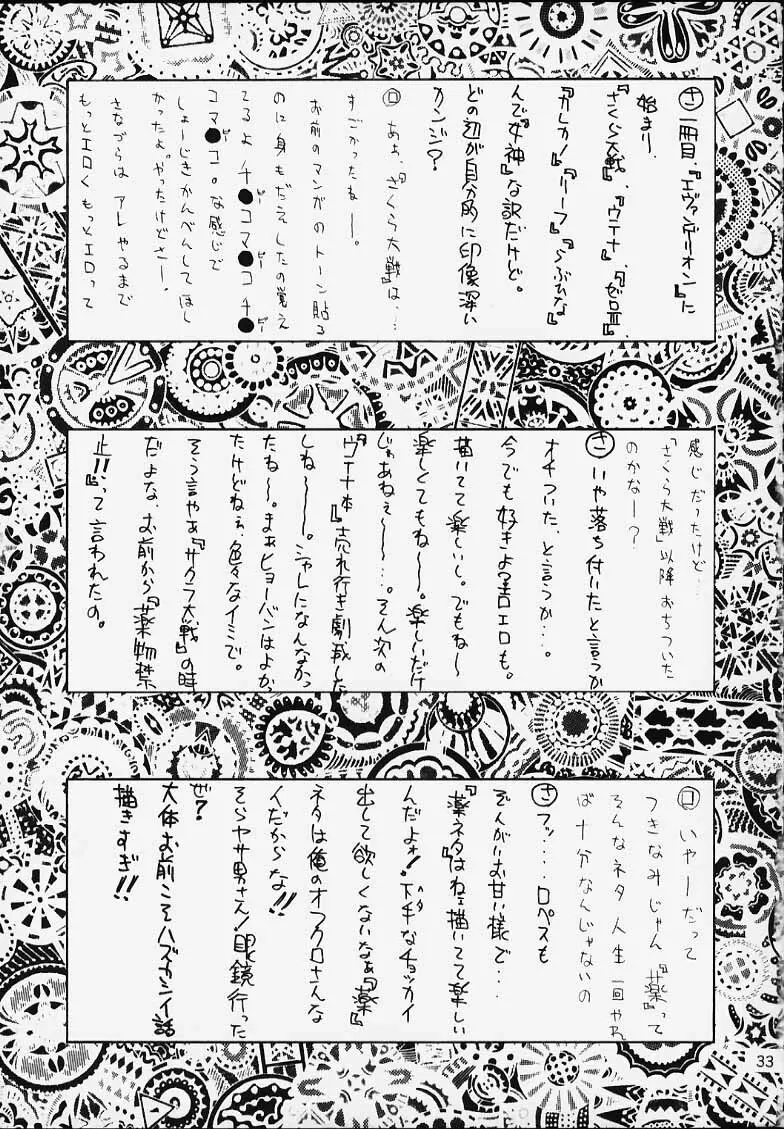 さ 一冊目、『エヴァンゲリオン』に
始まり、
『さくら大戦』、『ウテナ』、『ゼロⅢ』
『カレカノ』『リーフ』『らぶひな』
んで『女神』な訳だけど。
どの辺が自分的に印像深い
カンジ？
ロ あぁ、『さくら大戦』は…
すごかったねー。
お前のマンガのトーン貼る
のに身もだえしたの覚え
てるよ チ●コマ●コチ●
ピー ピー ピー
コマ●コ。な感じで
ピー
しょーじきかんべんしてほし
かったよ。やったけどさー、
さなづらは アレ やるまで
もっとエロくもっとエロって
感じだったけど…
「さくら大戦」以降 おちついた
のかなー？
さ いや落ち付いたと言うか
オチついた、と言うか…。
今でも好きよ？エロエロも。
描いてて楽しいし。でもね〜
楽しくてもね〜。楽しいだけ
じゃあねぇ〜…。そん次の
『ウテナ本』売れ行き劇減した
しね〜。シャレになんなかっ
たね〜。まぁヒョーバンはよかっ
たけどねぇ、色々なイミで。
そう言やぁ『サクラ大戦』の時
だよな、お前から『薬物禁
止!!』って言われたの。
ロ いやーだって
つきなみじゃん『薬』って
そんなネタ人生一回やれ
ば十分なんじゃないの
さ フッ…。ロペスも
ぞんがいお甘い様で…
『薬ネタはねェ描いてて楽しい
んだよォ！下手なチョッカイ
ヘタ
出して欲しくないなぁ『薬』
ネタは俺のオフクロさんな
んだからな!!
そらヤサ男さん！眼鏡行った
ぜ？
大体お前こそハズカシイ話
描きすぎ!!
33